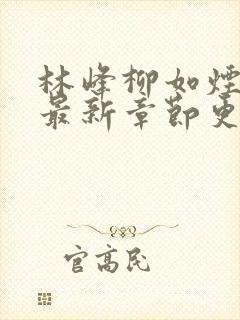 林峰柳如煙
最新章節更
官高民